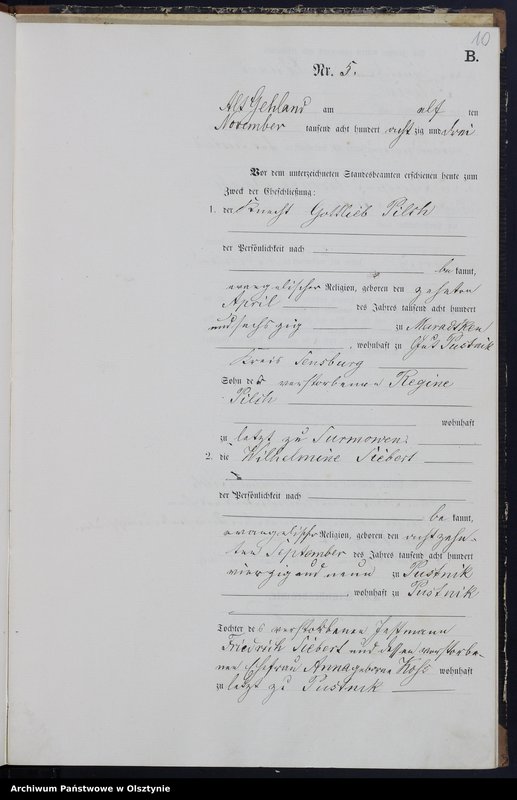 10
B.
Nr. 5.
Alt Gehland am elf ten
November tausend acht hundert acht zig und drei
Vor dem unterzeichneten Standesbeamten erschienen heute zum
Zweck der Eheschließung:
1. der Knecht Gottlieb Pilch
der Persönlichkeit nach
be kannt,
evangelischer Religion, geboren den zehnten
April des Jahres tausend acht hundert
und sechszig zu Muradtken
, wohnhaft zu Gut Pustnik
Kreis Sensburg
Sohn der verstorbenen Regine
Pilch
wohnhaft
zu letzt zu Surmowen.
2. die Wilhelmine Siebert
der Persönlichkeit nach
be kannt,
evangelischer Religion, geboren den achtzehn-
ten September des Jahres tausend acht hundert
vierzig und neun zu Pustnik
, wohnhaft zu Pustnik
Tochter des verstorbenen Instmann
Friedrich Siebert und dessen verstorbe-
nen Ehefrau Anna geborne wohnhaft
zu letzt zu Pustnik
Archiwum Państwowe w Olsztynie